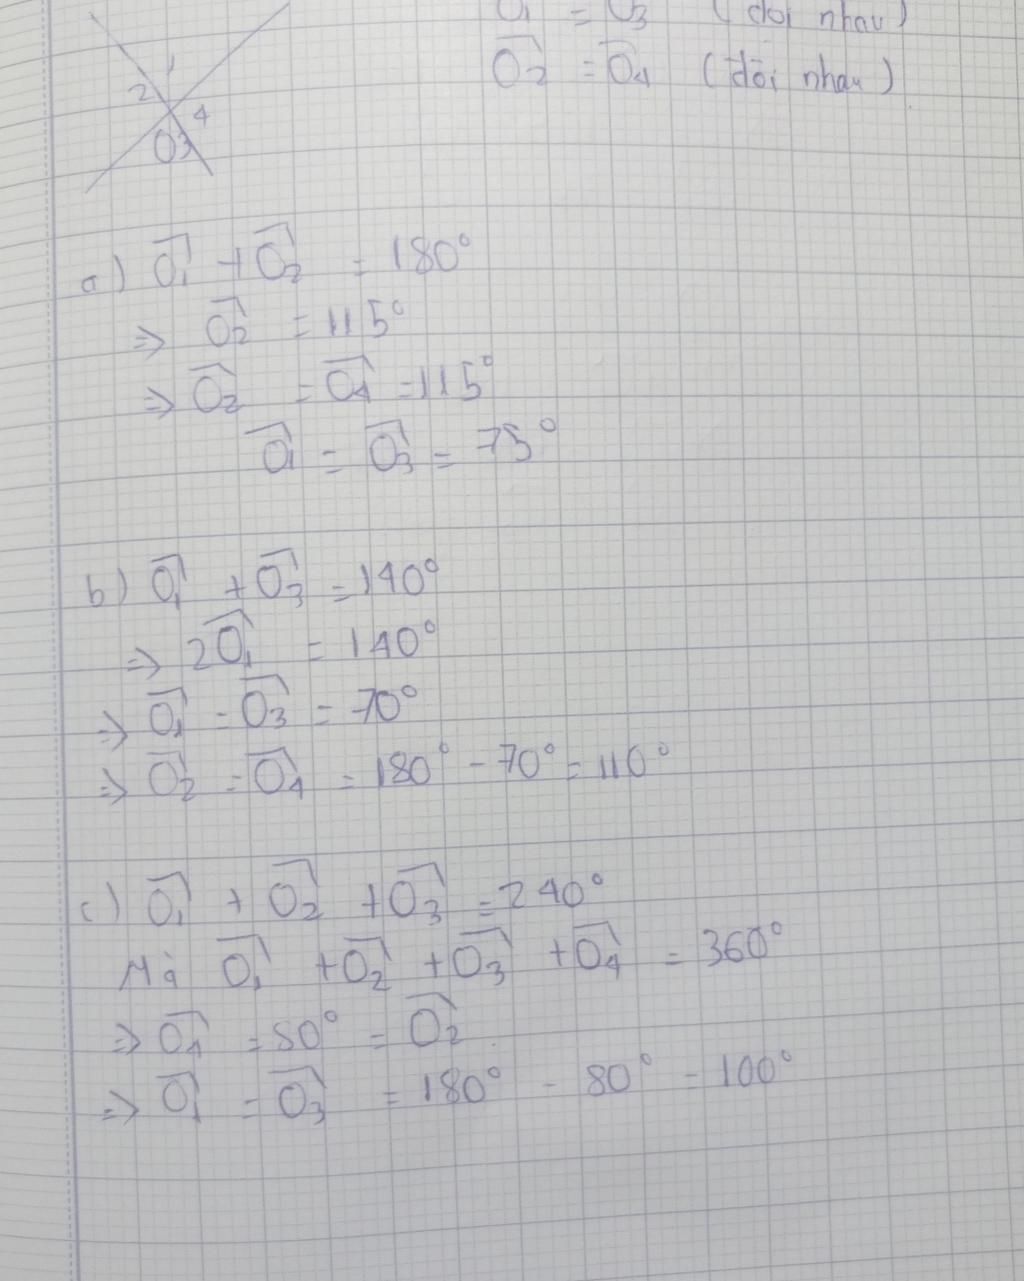 O1 = O3 (đối nhau)
O2 = O4 (đối nhau)
1
2
4
O3
a) O1 + O2 = 180°
=> O2 = 115°
=> O2 = O4 = 115°
O1 = O3 = 75°
b) O1 + O3 = 140°
=> 2O1 = 140°
=> O1 = O3 = 70°
=> O2 = O4 = 180° - 70° = 110°
c) O1 + O2 + O3 = 240°
Mà O1 + O2 + O3 + O4 = 360°
=> O4 = 80° = O2
=> O1 = O3 = 180° - 80° = 100°